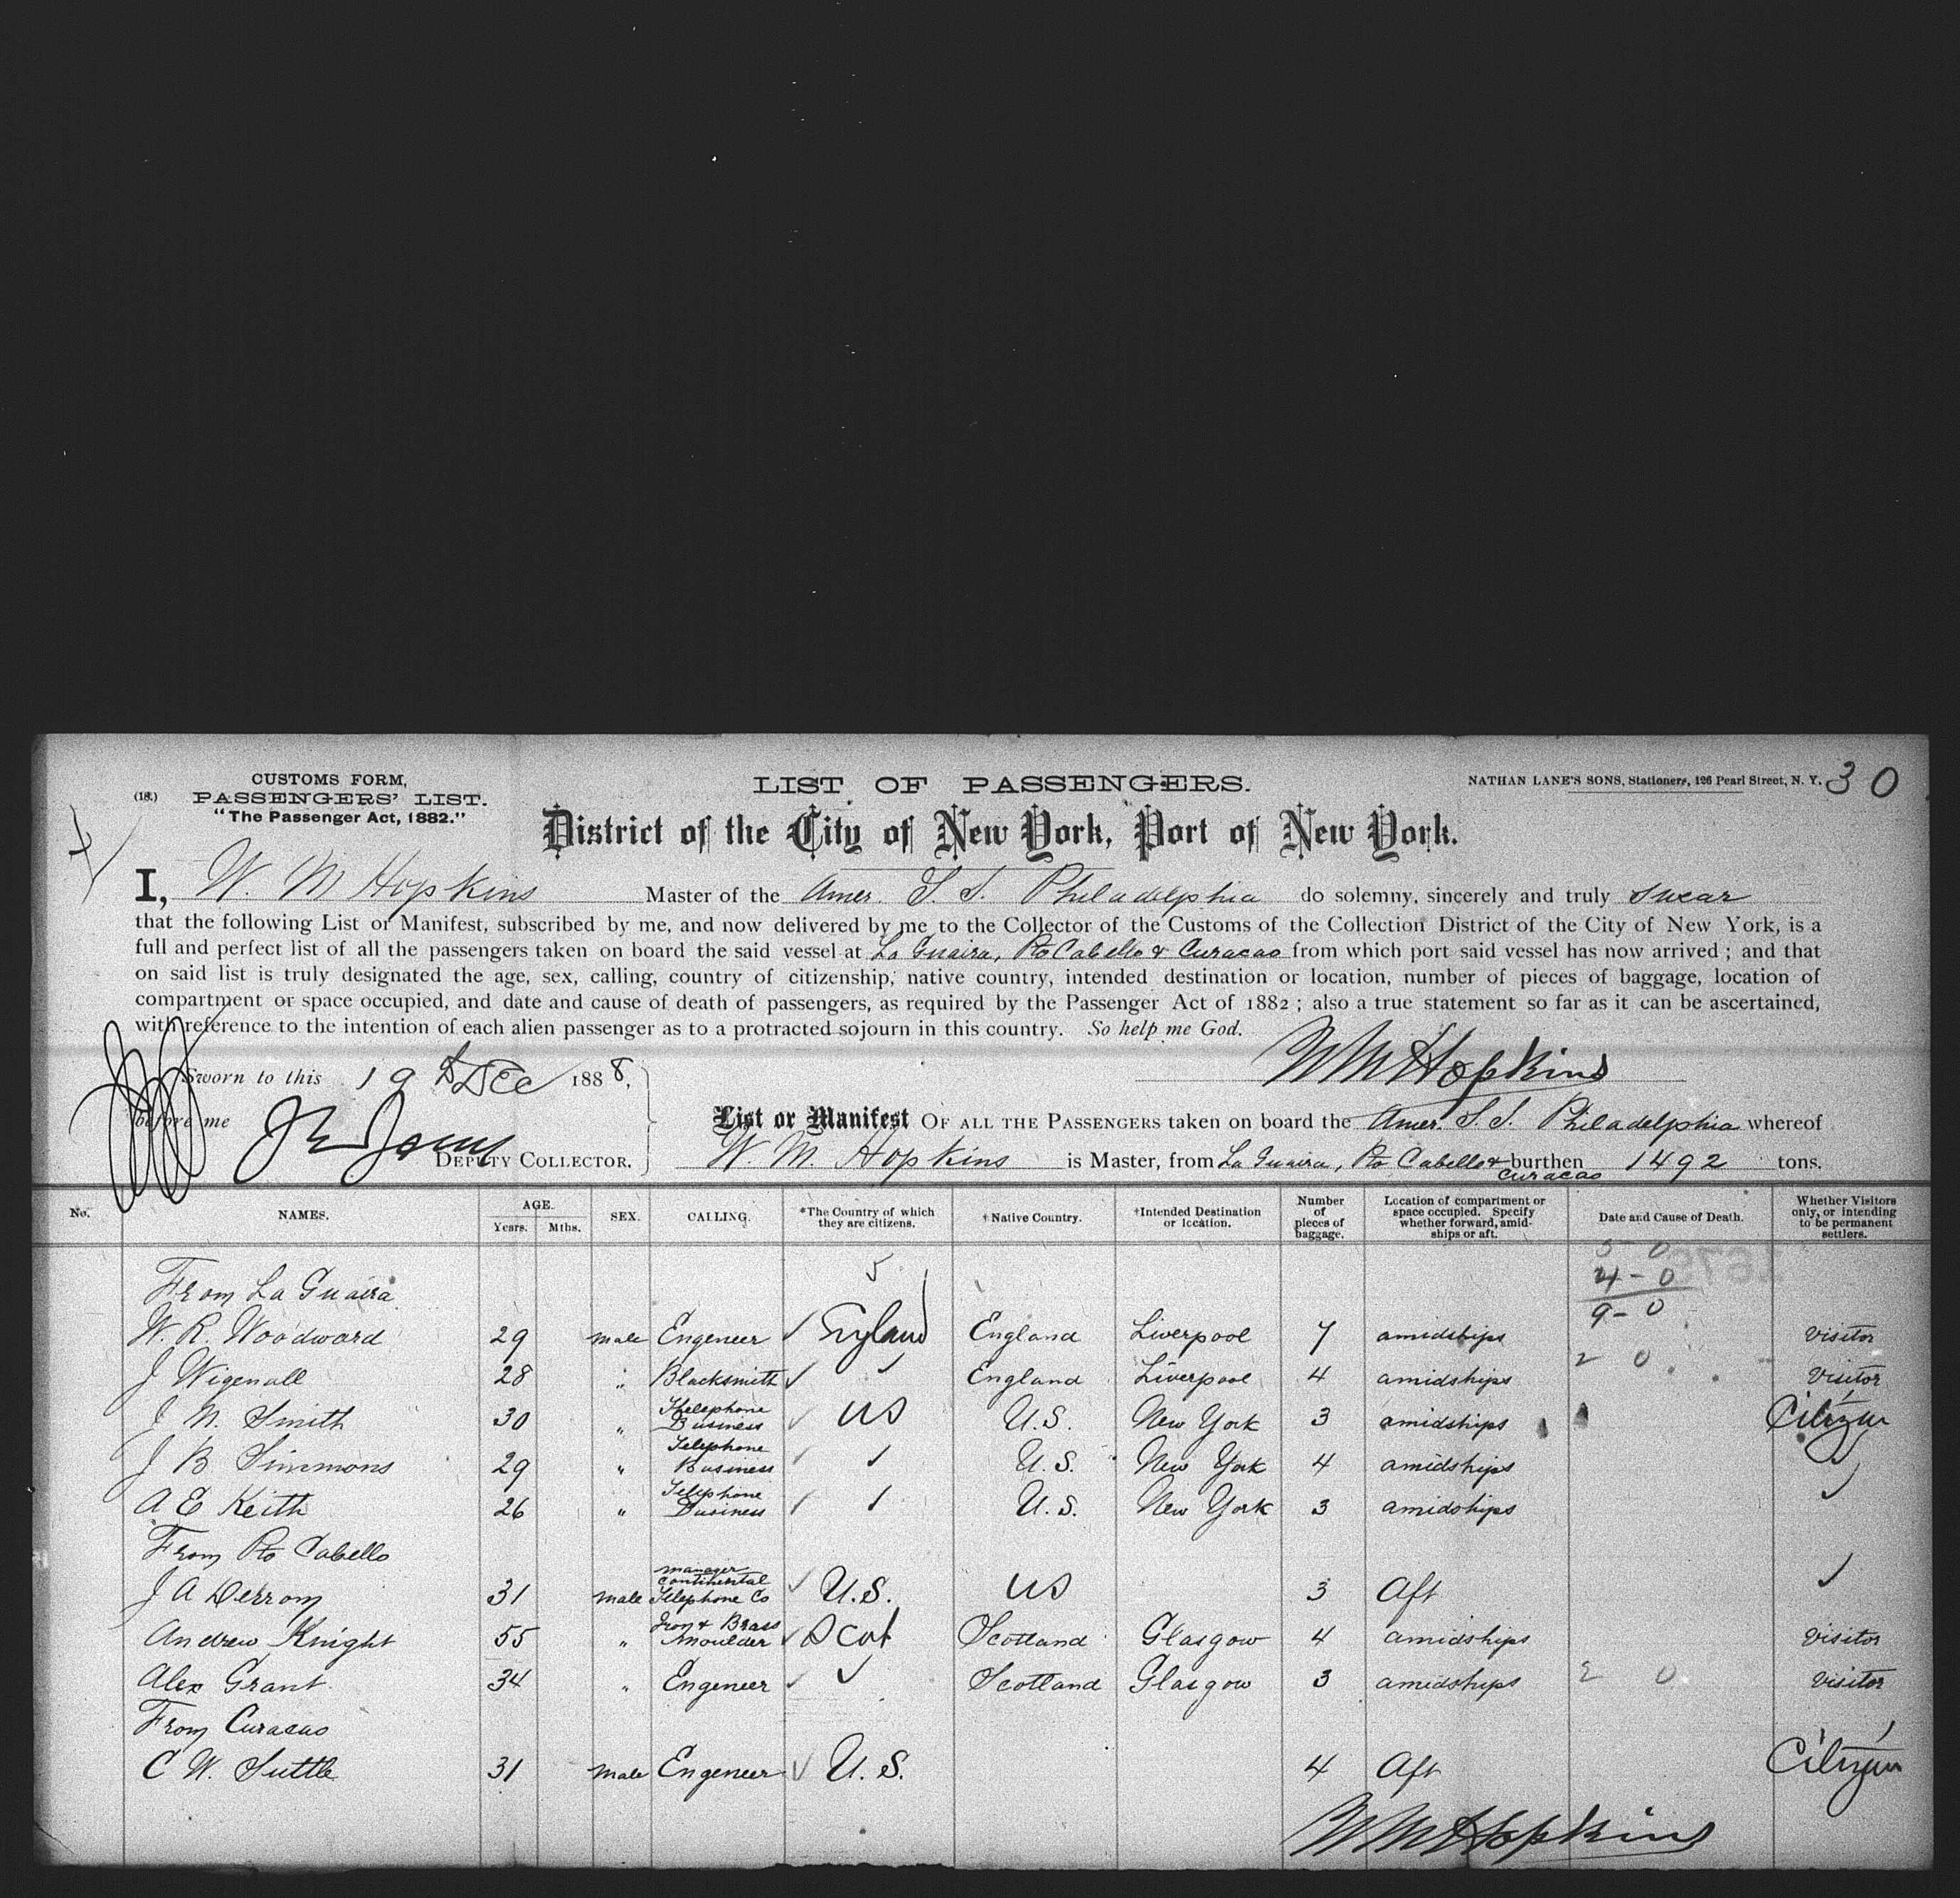 30
(18.) CUSTOMS FORM, PASSENGERS' LIST. "The Passenger Act, 1882."
LIST OF PASSENGERS.
NATHAN LANE'S SONS, Stationers, 126 Pearl Street, N. Y.
District of the City of New York, Port of New York.
I, W. M Hopkins Master of the Amer. S. S. Philadelphia do solemny, sincerely and truly swear
that the following List or Manifest, subscribed by me, and now delivered by me to the Collector of the Customs of the Collection District of the City of New York, is a
full and perfect list of all the passengers taken on board the said vessel at La Guaira, Pto Cabello & Curacao from which port said vessel has now arrived ; and that
on said list is truly designated the age, sex, calling, country of citizenship, native country, intended destination or location, number of pieces of baggage, location of
compartment or space occupied, and date and cause of death of passengers, as required by the Passenger Act of 1882 ; also a true statement so far as it can be ascertained,
with reference to the intention of each alien passenger as to a protracted sojourn in this country. So help me God.
W M Hopkins
Sworn to this 19 Dec 1888,
before me
DEPUTY COLLECTOR.
List or Manifest OF ALL THE PASSENGERS taken on board the Amer. S. S. Philadelphia whereof
W. M. Hopkins is Master, from La Guaira, Pto Cabello & Curacao burthen 1492 tons.
No. NAMES. AGE. Years. Mths. SEX. CALLING. *The Country of which they are citizens. †Native Country. †Intended Destination or location. Number of pieces of baggage. Location of compartment or space occupied. Specify whether forward, amidships or aft. Date and Cause of Death. Whether Visitors only, or intending to be permanent settlers.
5 5 0
4 - 0
9 - 0
From La Guaira
W. R. Woodward 29 male Engeneer ✓ England England Liverpool 7 amidships visitor
2 0
J Wigenall 28 " Blacksmith ✓ ✓ England Liverpool 4 amidships visitor
J M. Smith 30 " Thelephone Business ✓ US U.S. New York 3 amidships Citizen
J B Simmons 29 " Telephone Business U.S. New York 4 amidships ✓
A E Keith 26 " Telephone Business U.S. New York 3 amidships ✓
From Pto Cabello
J A Derrom 31 male manager continental Telephone Co ✓ U.S. US 3 Aft ✓
Andrew Knight 55 " Iron & Brass Moulder ✓ Scot Scotland Glasgow 4 amidships visitor
Alex Grant 34 " Engeneer ✓ ✓ Scotland Glasgow 3 amidships 2 0 visitor
From Curacao
C W. Suttle 31 male Engeneer ✓ U.S. 4 Aft Citizen
W M Hopkins